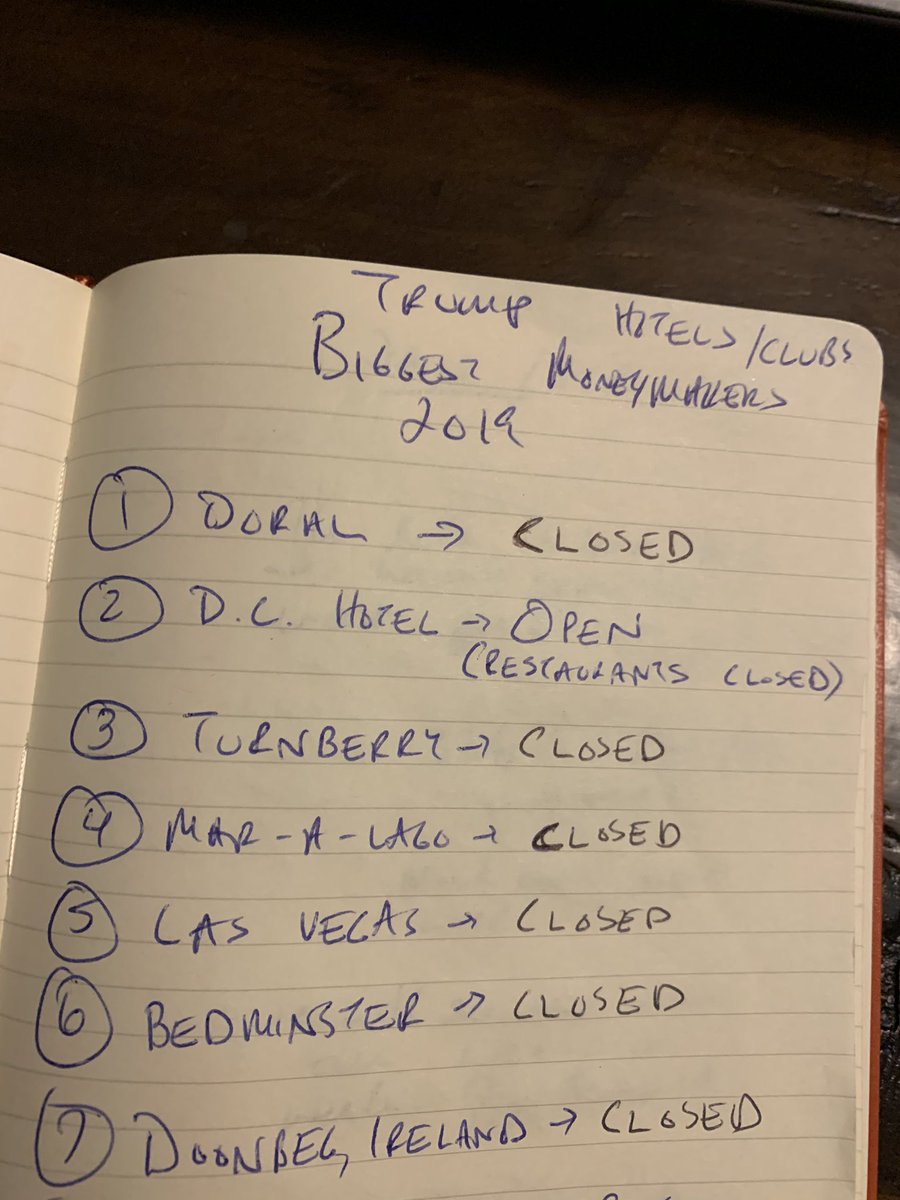 TRUMP HOTELS/CLUBS
BIGGEST MONEYMAKERS
2019
1 DORAL → CLOSED
2 D.C. HOTEL → OPEN
(RESTAURANTS CLOSED)
3 TURNBERRY → CLOSED
4 MAR-A-LAGO → CLOSED
5 LAS VEGAS → CLOSED
6 BEDMINSTER → CLOSED
7 DOONBEG, IRELAND → CLOSED